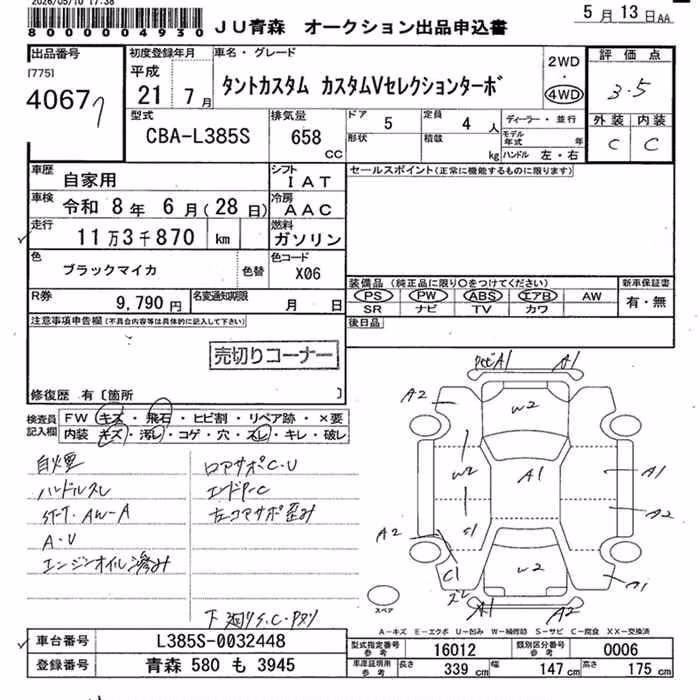 2026/05/10 17:38
8000004930
JU青森 オークション出品申込書
5月13日AA
出品番号
[775]
40677
初度登録年月
平成
21 7月
車名・グレード
タントカスタム カスタムVセレクションターボ
2WD
・
4WD
評価点
3.5
外装 内装
C C
型式
CBA-L385S
排気量
658
CC
ドア
5
形状
定員
4 人
積載
kg
ディーラー・並行
モデル年式 年
ハンドル 左・右
車歴
自家用
シフト
IAT
セールスポイント(正常に機能するものに限ります)
車検
令和 8年 6月(28日)
冷房
AAC
走行
11万3千870 km
燃料
ガソリン
色
ブラックマイカ
色替
色コード
X06
R券
9,790円
名変通知期限
月 日
装備品(純正品に限り○をつけてください)
PS PW ABS エアB AW
SR ナビ TV カワ
新車保証書
有・無
後日品
注意事項申告欄(不具合内容等は具体的に記入して下さい)
売切りコーナー
修復歴 有〔箇所 〕
検査員記入欄
FW キズ・飛石・ヒビ割・リペア跡・×要
内装 キズ・汚レ・コゲ・穴・スレ・キレ・破レ
ハンドルスレ
ST-T. AW-A
A・U
エンジンオイル滲み
ロアサポC・U
エンドPC
左コアサポ歪み
下廻りS.C.
A1
A1
A2
W2
W2
A1
A1
A2
S1
A2
C1
ズレ
W2
A1
A1
A2
スペア
A-キズ E-エクボ U-凹み W-補修跡 S-サビ C-腐食 XX-交換済
車台番号
L385S-0032448
登録番号
青森 580 も 3945
型式指定番号
参考
16012
類別区分番号
参考
0006
車庫証明用
参考
長さ
339 cm
幅
147 cm
高さ
175 cm